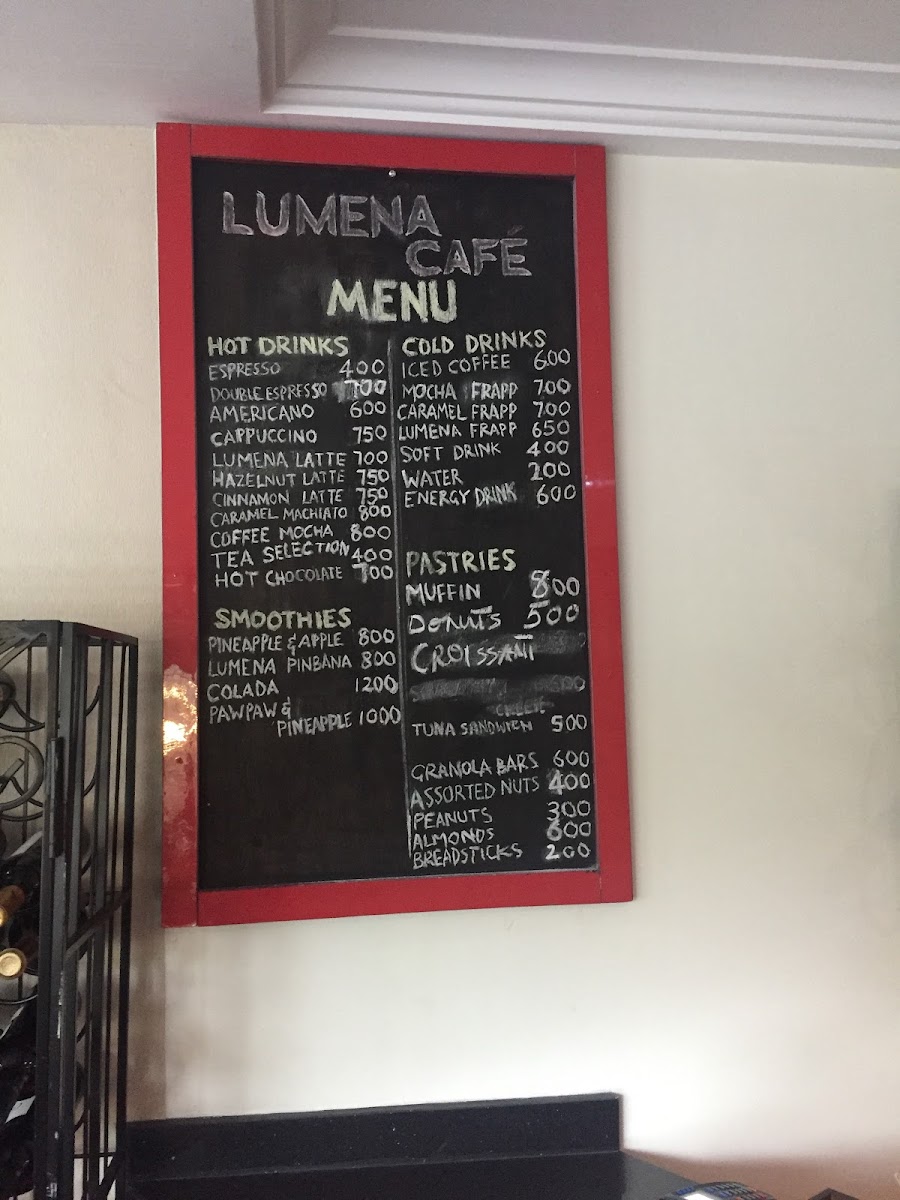 LUMENA
CAFÉ
MENU
HOT DRINKS
ESPRESSO 400
DOUBLE ESPRESSO 700
AMERICANO 600
CAPPUCCINO 750
LUMENA LATTE 700
HAZELNUT LATTE 750
CINNAMON LATTE 750
CARAMEL MACHIATO 800
COFFEE MOCHA 800
TEA SELECTION 400
HOT CHOCOLATE 700
SMOOTHIES
PINEAPPLE & APPLE 800
LUMENA PINBANA 800
COLADA 1200
PAWPAW &
PINEAPPLE 1000
COLD DRINKS
ICED COFFEE 600
MOCHA FRAPP 700
CARAMEL FRAPP 700
LUMENA FRAPP 650
SOFT DRINK 400
WATER 200
ENERGY DRINK 600
PASTRIES
MUFFIN 800
DONUTS 500
CROISSANT
TUNA SANDWICH 500
GRANOLA BARS 600
ASSORTED NUTS 400
PEANUTS 300
ALMONDS 600
BREADSTICKS 200